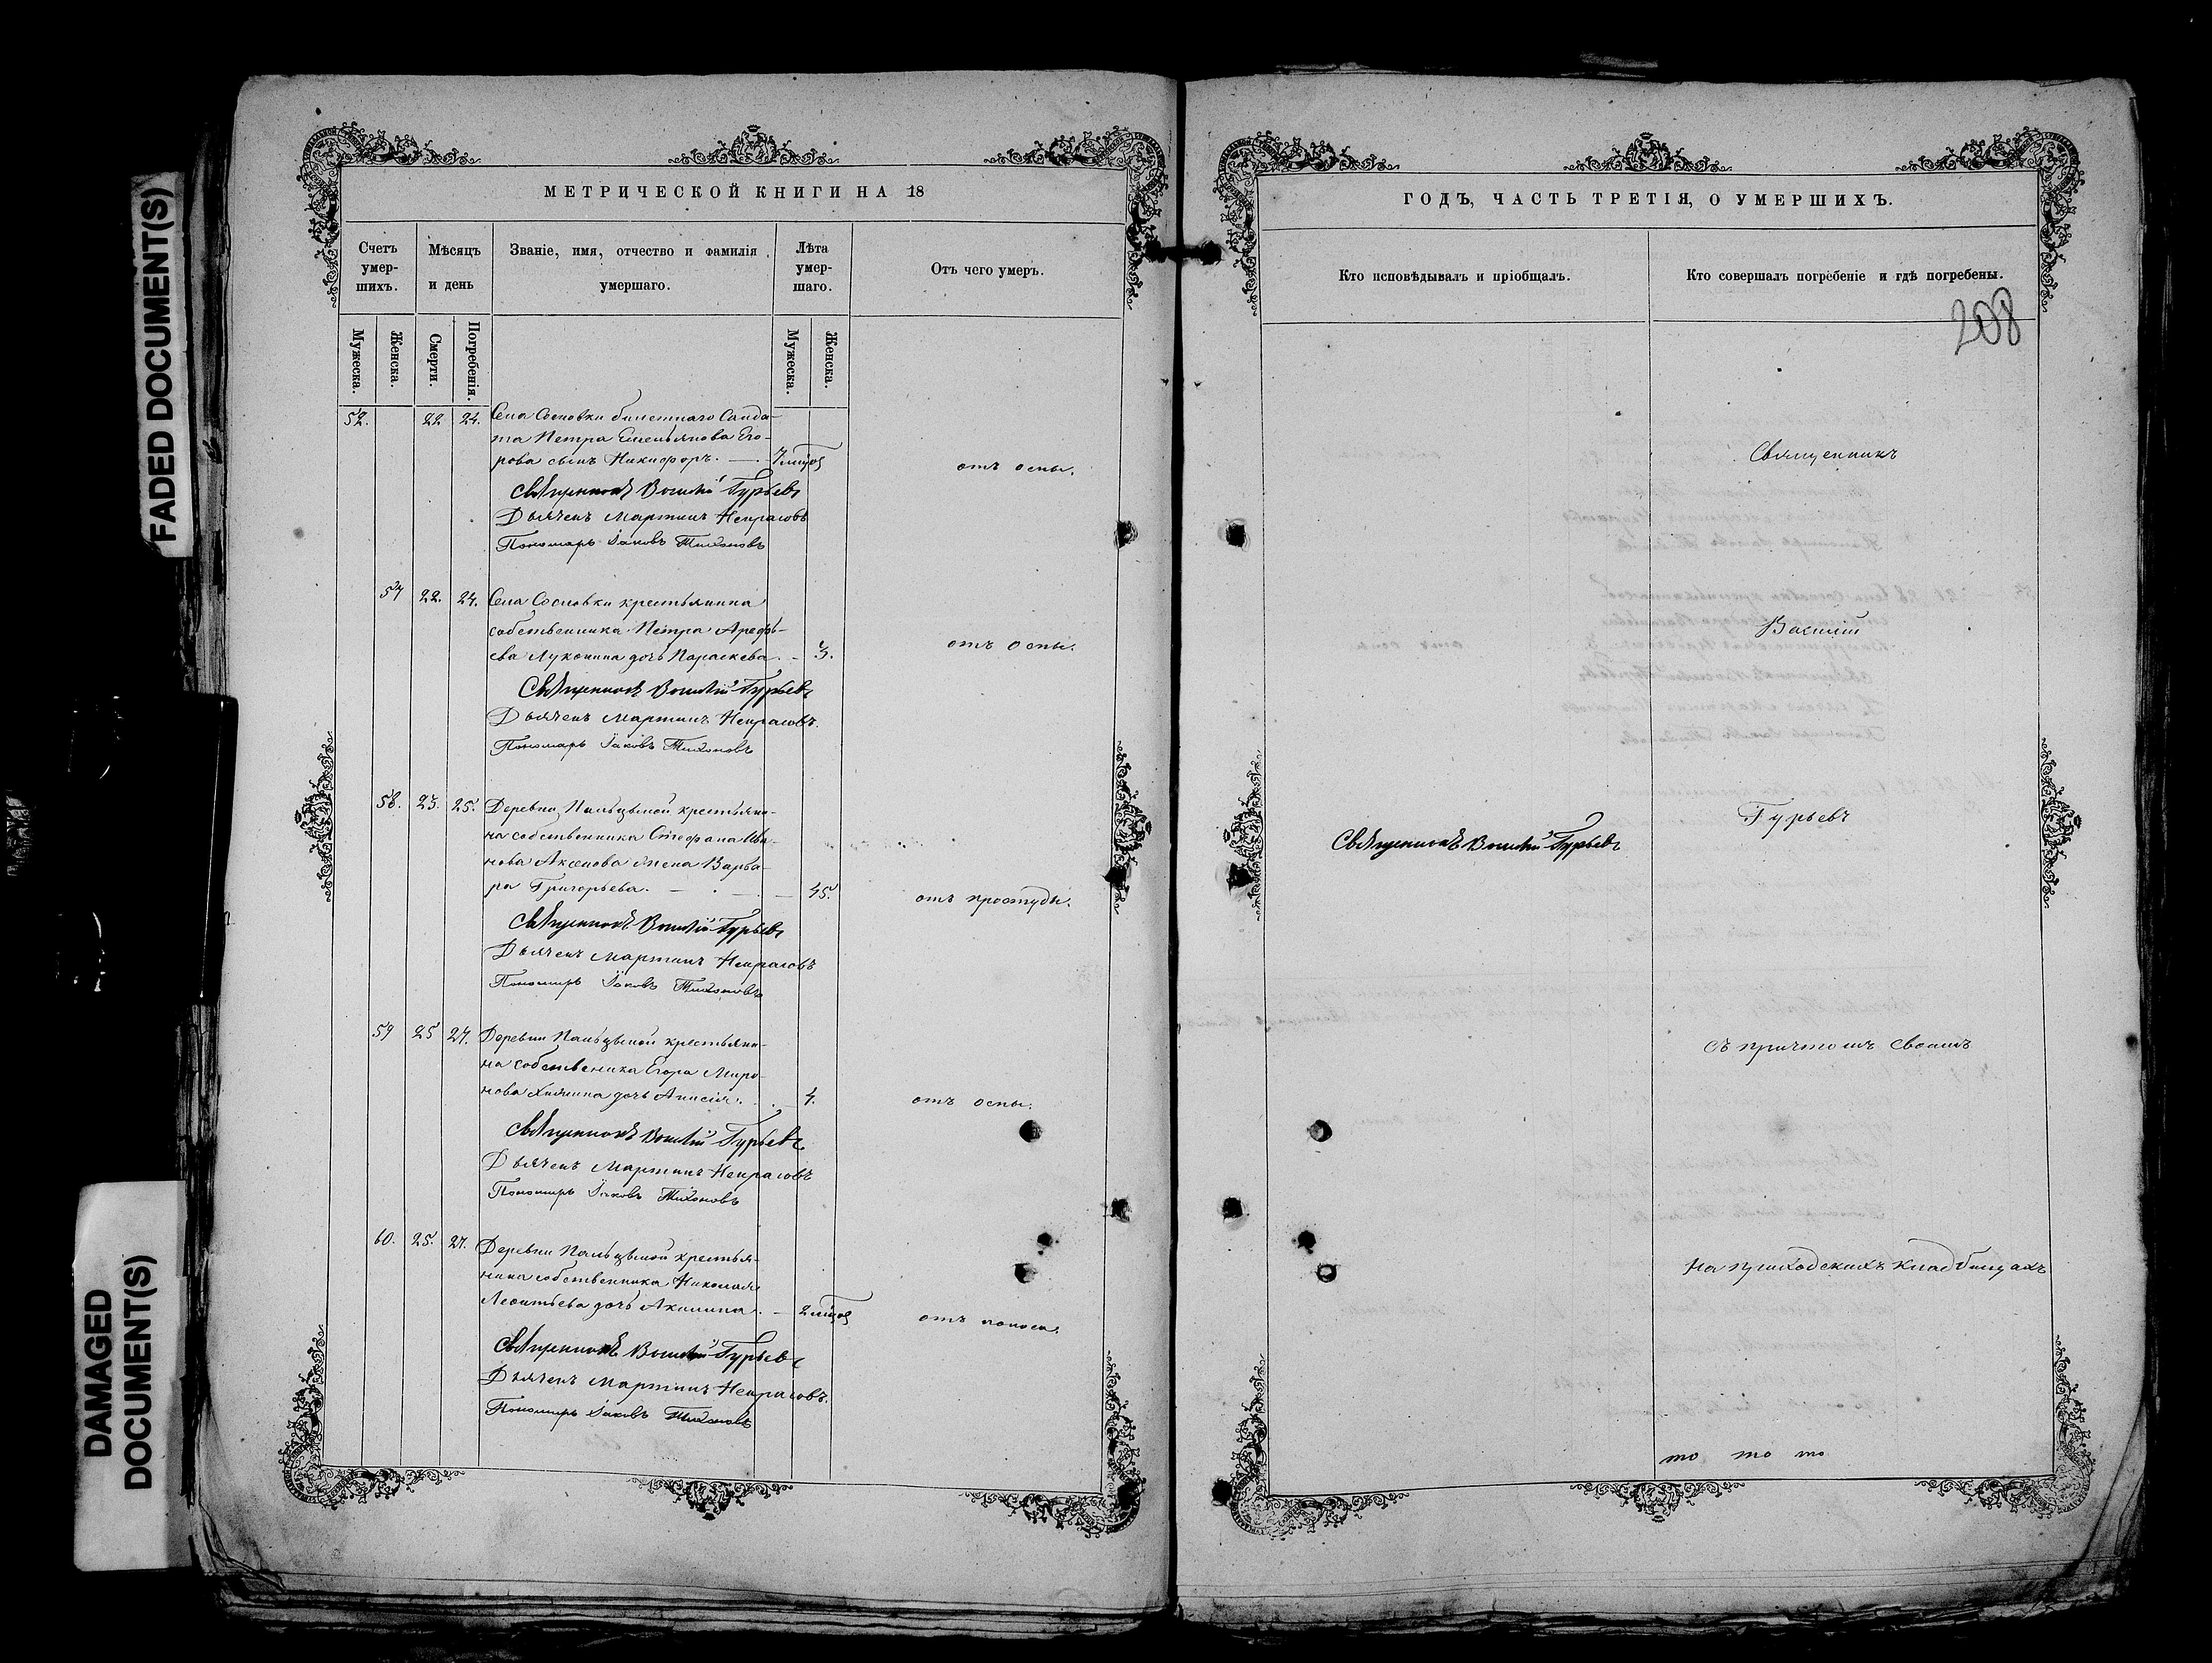 FADED DOCUMENT(S)
DAMAGED
DOCUMENT(S)
МЕТРИЧЕСКОЙ КНИГИ НА 18
Счетъ умер-шихъ.
Мѣсяцъ и день
Званіе, имя, отчество и фамилія умершаго.
Лѣта умер-шаго.
Отъ чего умеръ.
Мужеска.
Женска.
Смерти.
Погребенія.
Мужеска.
Женска.
52. 22 24. Села Сосновки билетнаго Солда-
та Петра Емельянова Его-
рова сынъ Никифоръ. отъ оспы.
Священникъ Василій Гурьевъ
Дьячекъ Мартинъ Некрасовъ
Пономарь Іаковъ Тихоновъ
57 22. 24. Села Сосновки крестьянина
собственника Петра Арефь-
ева Луконина дочь Параскева. 3. отъ оспы.
Священникъ Василій Гурьевъ
Дьячекъ Мартинъ Некрасовъ.
Пономарь Іаковъ Тихоновъ
58. 23. 25. Деревни крестьяни-
на собственника Стефана Ива-
нова Аксенова жена Варва-
ра Григорьева. 45. отъ простуды.
Священникъ Василій Гурьевъ
Дьячекъ Мартинъ Некрасовъ
Пономарь Іаковъ Тихоновъ
59 25 27. Деревни крестьяни-
на собственника Егора Миро-
нова дочь Анисія. 4. отъ оспы.
Священникъ Василій Гурьевъ
Дьячекъ Мартинъ Некрасовъ
Пономарь Іаковъ Тихоновъ
60. 25. 27. Деревни крестья-
нина собственника Николая
Леонтьева дочь Акилина. отъ поноса.
Священникъ Василій Гурьевъ
Дьячекъ Мартинъ Некрасовъ.
Пономарь Іаковъ Тихоновъ
ГОДЪ, ЧАСТЬ ТРЕТІЯ, О УМЕРШИХЪ.
Кто исповѣдывалъ и пріобщалъ.
Кто совершалъ погребеніе и гдѣ погребены.
208
Священникъ
Василій
Гурьевъ
Священникъ Василій Гурьевъ
съ причтомъ своимъ
на приходскихъ кладбищахъ
то то то